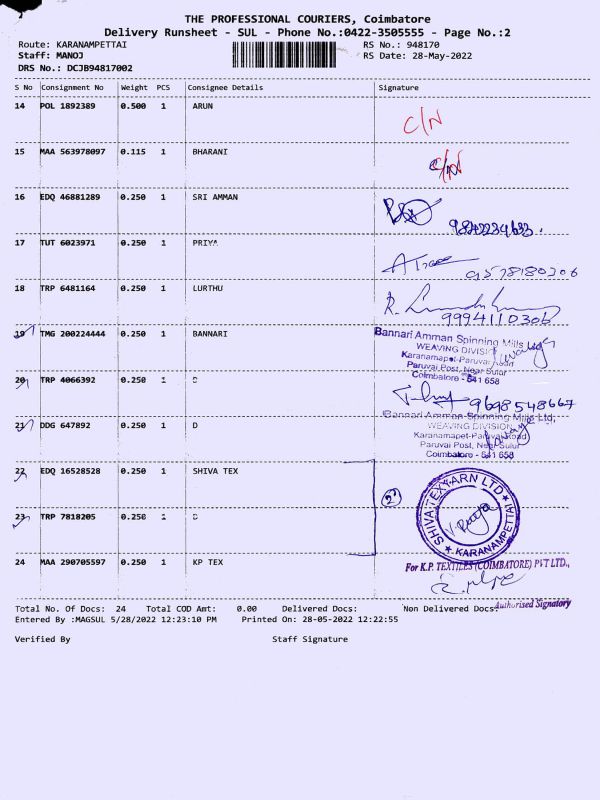 THE PROFESSIONAL COURIERS, Coimbatore
Delivery Runsheet - SUL - Phone No.:0422-3505555 - Page No.:2
Route: KARANAMPETTAI
RS No.: 948170
Staff: MANOJ
RS Date: 28-May-2022
DRS No.: DCJB94817002
S No Consignment No Weight PCS Consignee Details Signature
14 POL 1892389 0.500 1 ARUN C/N
15 MAA 563978097 0.115 1 BHARANI C/N
16 EDQ 46881289 0.250 1 SRI AMMAN
17 TUT 6023971 0.250 1 PRIYA
9578180206
18 TRP 6481164 0.250 1 LURTHU
9994110306
19 TMG 200224444 0.250 1 BANNARI
Bannari Amman Spinning Mills
WEAVING DIVISION
Karanamapet-Paruvai Road
Paruvai Post, Near Sulur
Coimbatore - 641 658
20 TRP 4066392 0.250 1 D
9698548667
21 DDG 647892 0.250 1 D
Bannari Amman Spinning Mills Ltd,
WEAVING DIVISION
Karanamapet-Paruvai Road
Paruvai Post, Near Sulur
Coimbatore - 641 658
22 EDQ 16528528 0.250 1 SHIVA TEX
SHIVA TEXYARN LTD
KARANAMPETTAI
23 TRP 7818205 0.250 1 D
24 MAA 290705597 0.250 1 KP TEX
For K.P. TEXTILES (COIMBATORE) PVT LTD.,
Authorised Signatory
Total No. Of Docs: 24 Total COD Amt: 0.00 Delivered Docs: Non Delivered Docs:
Entered By :MAGSUL 5/28/2022 12:23:10 PM Printed On: 28-05-2022 12:22:55
Verified By Staff Signature